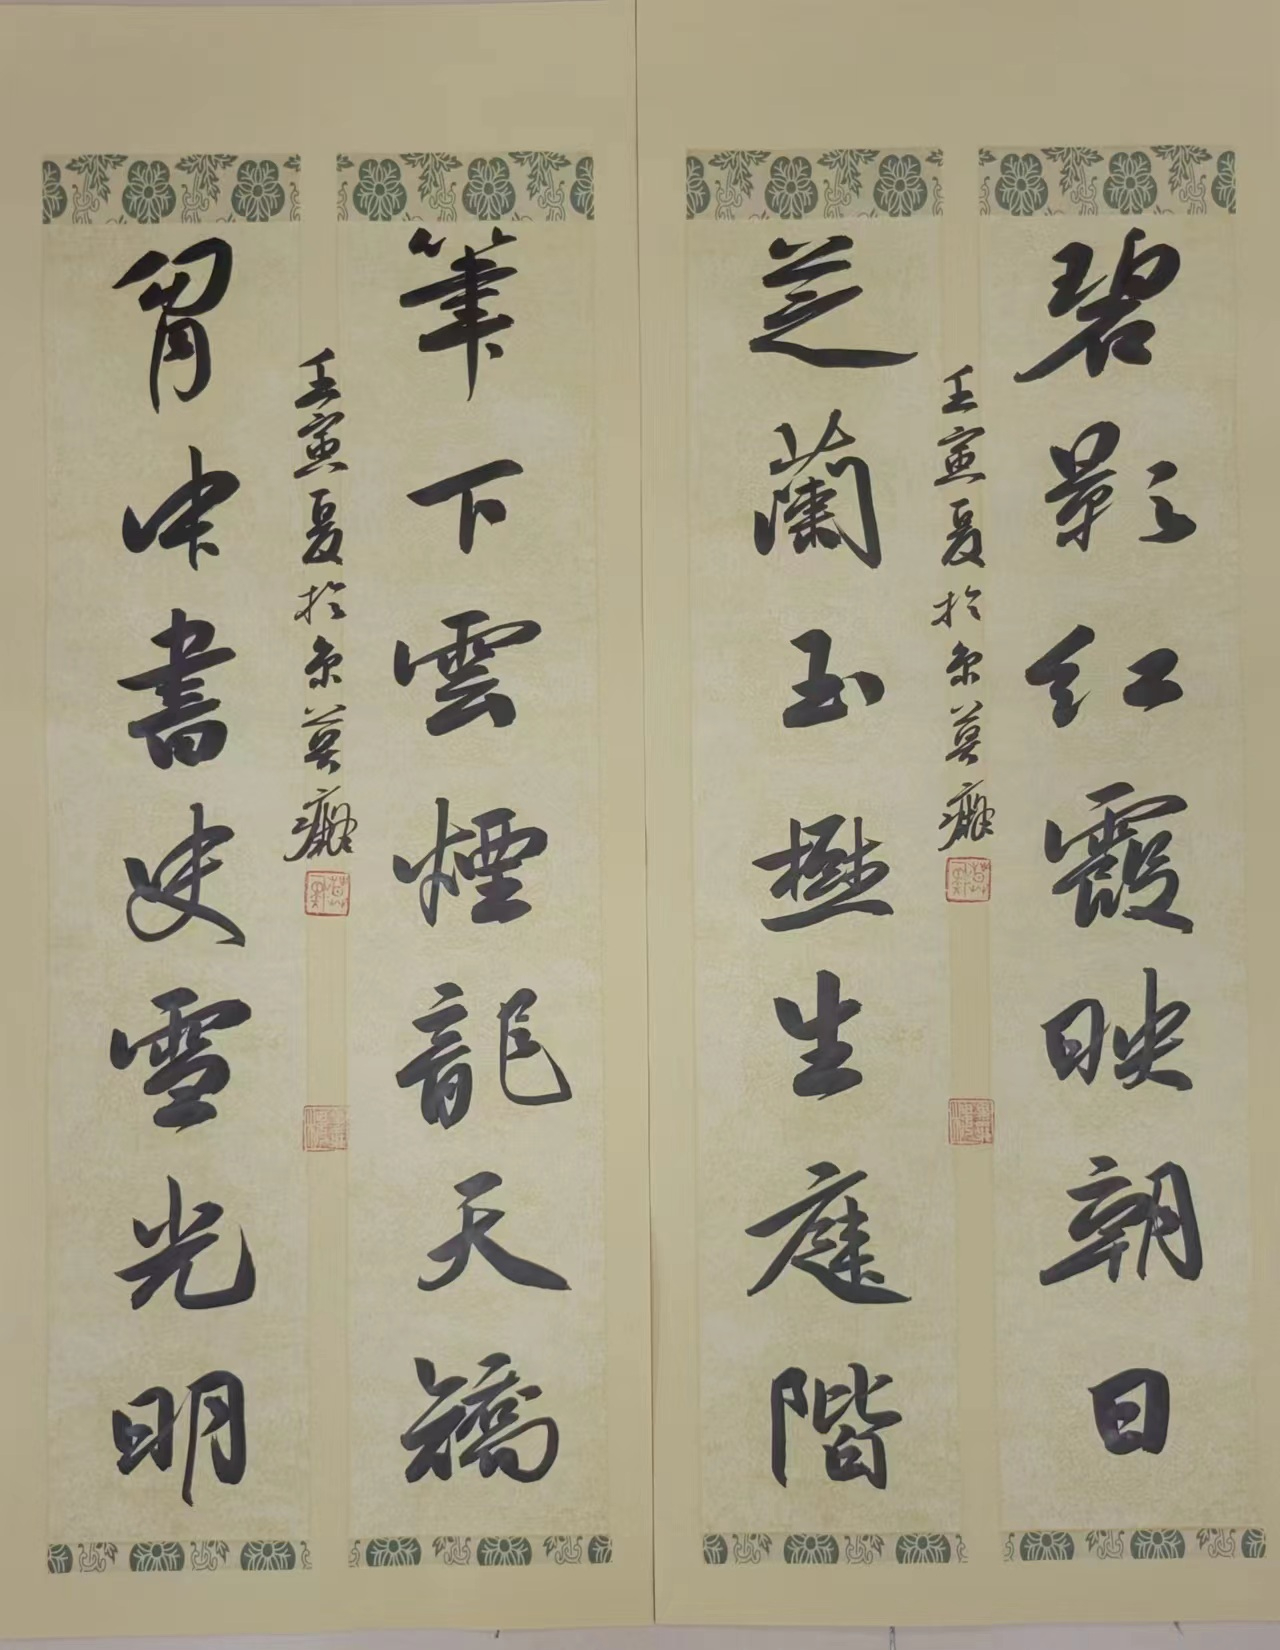 碧影红霞映朝日
芝蘭玉樹生庭階
壬寅夏於京
筆下雲煙龍天矯
胷中書史雪光明
壬寅夏於京